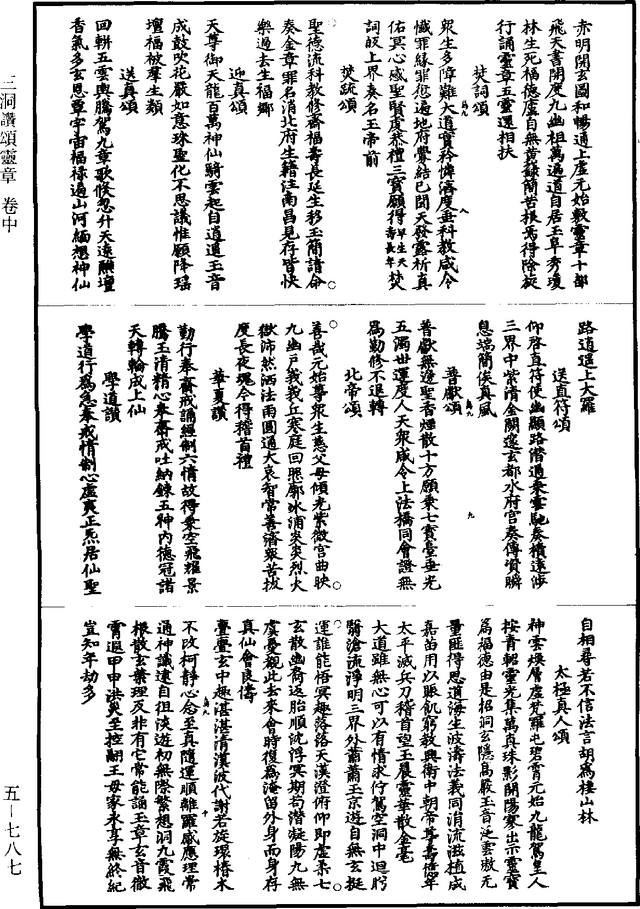 赤明開玄圖和暢通上虛元始敷靈章十部
飛天書開度九幽祖萬遍道自居玉阜秀瓊
林生死福德廬自無黄籙簡苦根焉得除旋
行誦靈章五靈還相扶
焚詞頌
眾生多障難大道實矜憐濟度垂科教咸令
懺罪緣罪愆遍地府釁結已聞天發露祈真
佑冥心感聖賢虔恭禮三寶願得早生天壽長年焚
詞啟上界奏名玉帝前
焚疏頌
聖德流科教修齋福壽長延生移玉簡請命
奏金章罪名消北府生籍注南昌見存皆快
樂過去生福鄉
迎真頌
天尊御天龍百萬神仙騎雲起自道遥玉音
成鼓吹花嚴如意珠聖化不思議惟願降瑶
壇福被羣生類
送真頌
回軿五雲輿騰駕九章歌倏忽升天遠願壇
香氣多玄恩覃宇宙福祿遍山河緬想神仙
路逍遥上大羅
送直符頌
仰啓直符使幽顯路潛通乗雲馳奏牘遠陟
三界中紫清金闕邃玄都水府宫奏傳須瞬
息端簡俟真風
普獻頌
普獻無邊聖香烟散十方願乗七寳臺垂光
五濁世運度人天衆咸令上法橋同會證無
爲勤修不退轉
北帝頌
善哉元始尊衆生慈父母傾光紫微宫曲映
九幽户峩峩丘寒庭回照廓冰浦炎炎烈火
獄沛然洒法雨圓通大哀智常善濟衆苦拔
度長夜魂令得稽首禮
華夏讚
勤行奉齋戒誦經制六情故得乗空飛耀景
騰玉清精心奉齋戒吐納鍊五神内德冠諸
天轉輪成上仙
學道讚
學道行爲急奉戒情制心虛夷正炁居仙聖
自相尋若不信法言胡爲棲山林
太極真人頌
神雲煥層虛梵羅屯碧霄元始九龍駕皇人
按青軺靈光集萬真珠影開陽寥出示靈寳
篇福德由是招洞玄隱高嚴玉音泛雲璈无
量匪得思道海生波濤法義同消流滋植成
嘉苗用以賑飢窮教興衛中朝帝尊壽億年
太平滅兵刀稽首望玉晨靈華散金毫
大道雖無心可以有情求佇駕空洞中迴眄
翳滄流淨明三界外蕭蕭玉京遊自無玄挺
運誰能悟冥趣落落天漢澄俯仰即虛柔七
玄散幽裔返胎順沈浮冥期苟潛凝陽九無
虞憂觀此去來會時復爲淹留外身而身存
真仙會良儔
亹亹玄中趣湛湛清漢波代謝若旋環椿木
不改柯靜心念至真隨運順離羅感應理常
通神識遠自徂淡遊初無際繁想洞九霞飛
根散玄葉理反非有它常能誦玉章玄音徹
霄遐甲申洪災至控翮王母家永享無終紀
豈知年劫多
三洞讚頌靈章 卷中
五—七八七